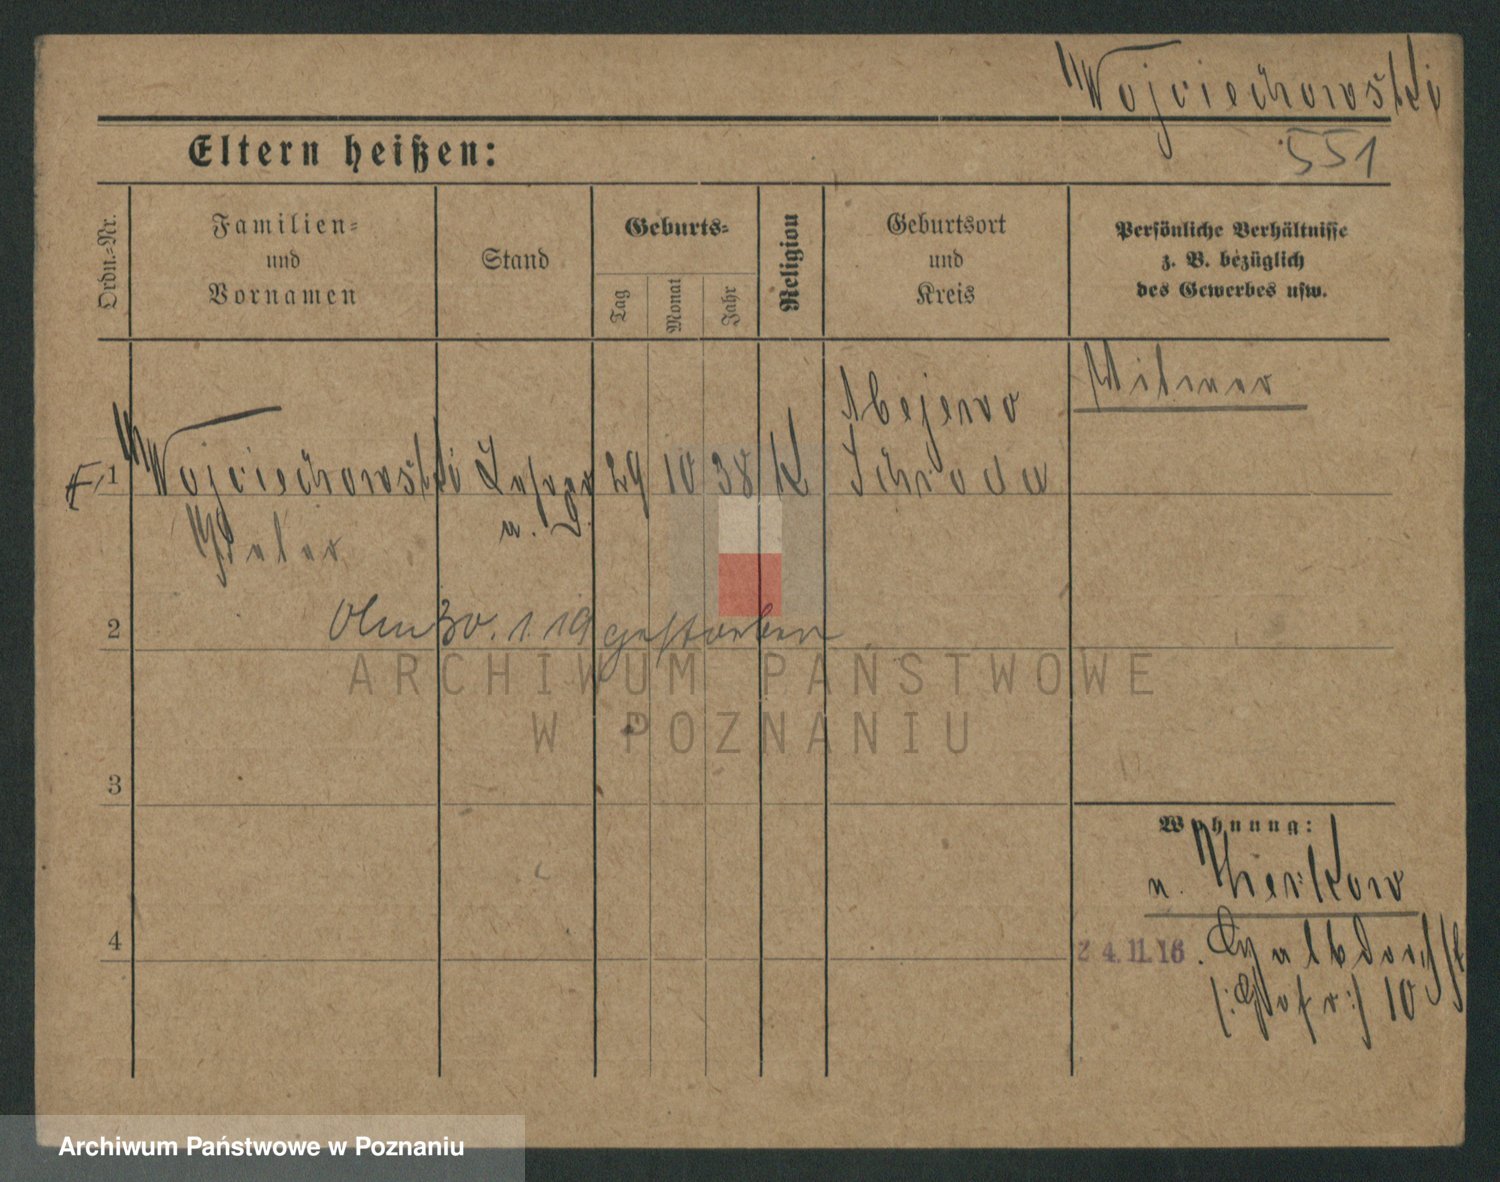 Wojciechowski
551
Eltern heißen:
Ordn.-Nr.
Familien-
und
Vornamen
Stand
Geburts-
Tag
Monat
Jahr
Religion
Geburtsort
und
Kreis
Persönliche Verhältnisse
z. B. bezüglich
des Gewerbes usw.
Witwer
1 Wojciechowski
29 10 38 K
Schroda
Peter
2
Am 30.1.19 gestorben
ARCHIWUM PAŃSTWOWE
W POZNANIU
3
Wohnung:
n. Zerkow
4
24.11.16.
10
Archiwum Państwowe w Poznaniu